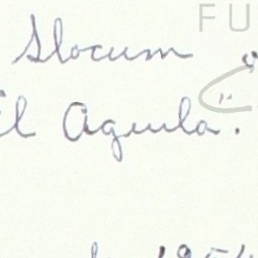 FU
Slocum
El Aguila.
195